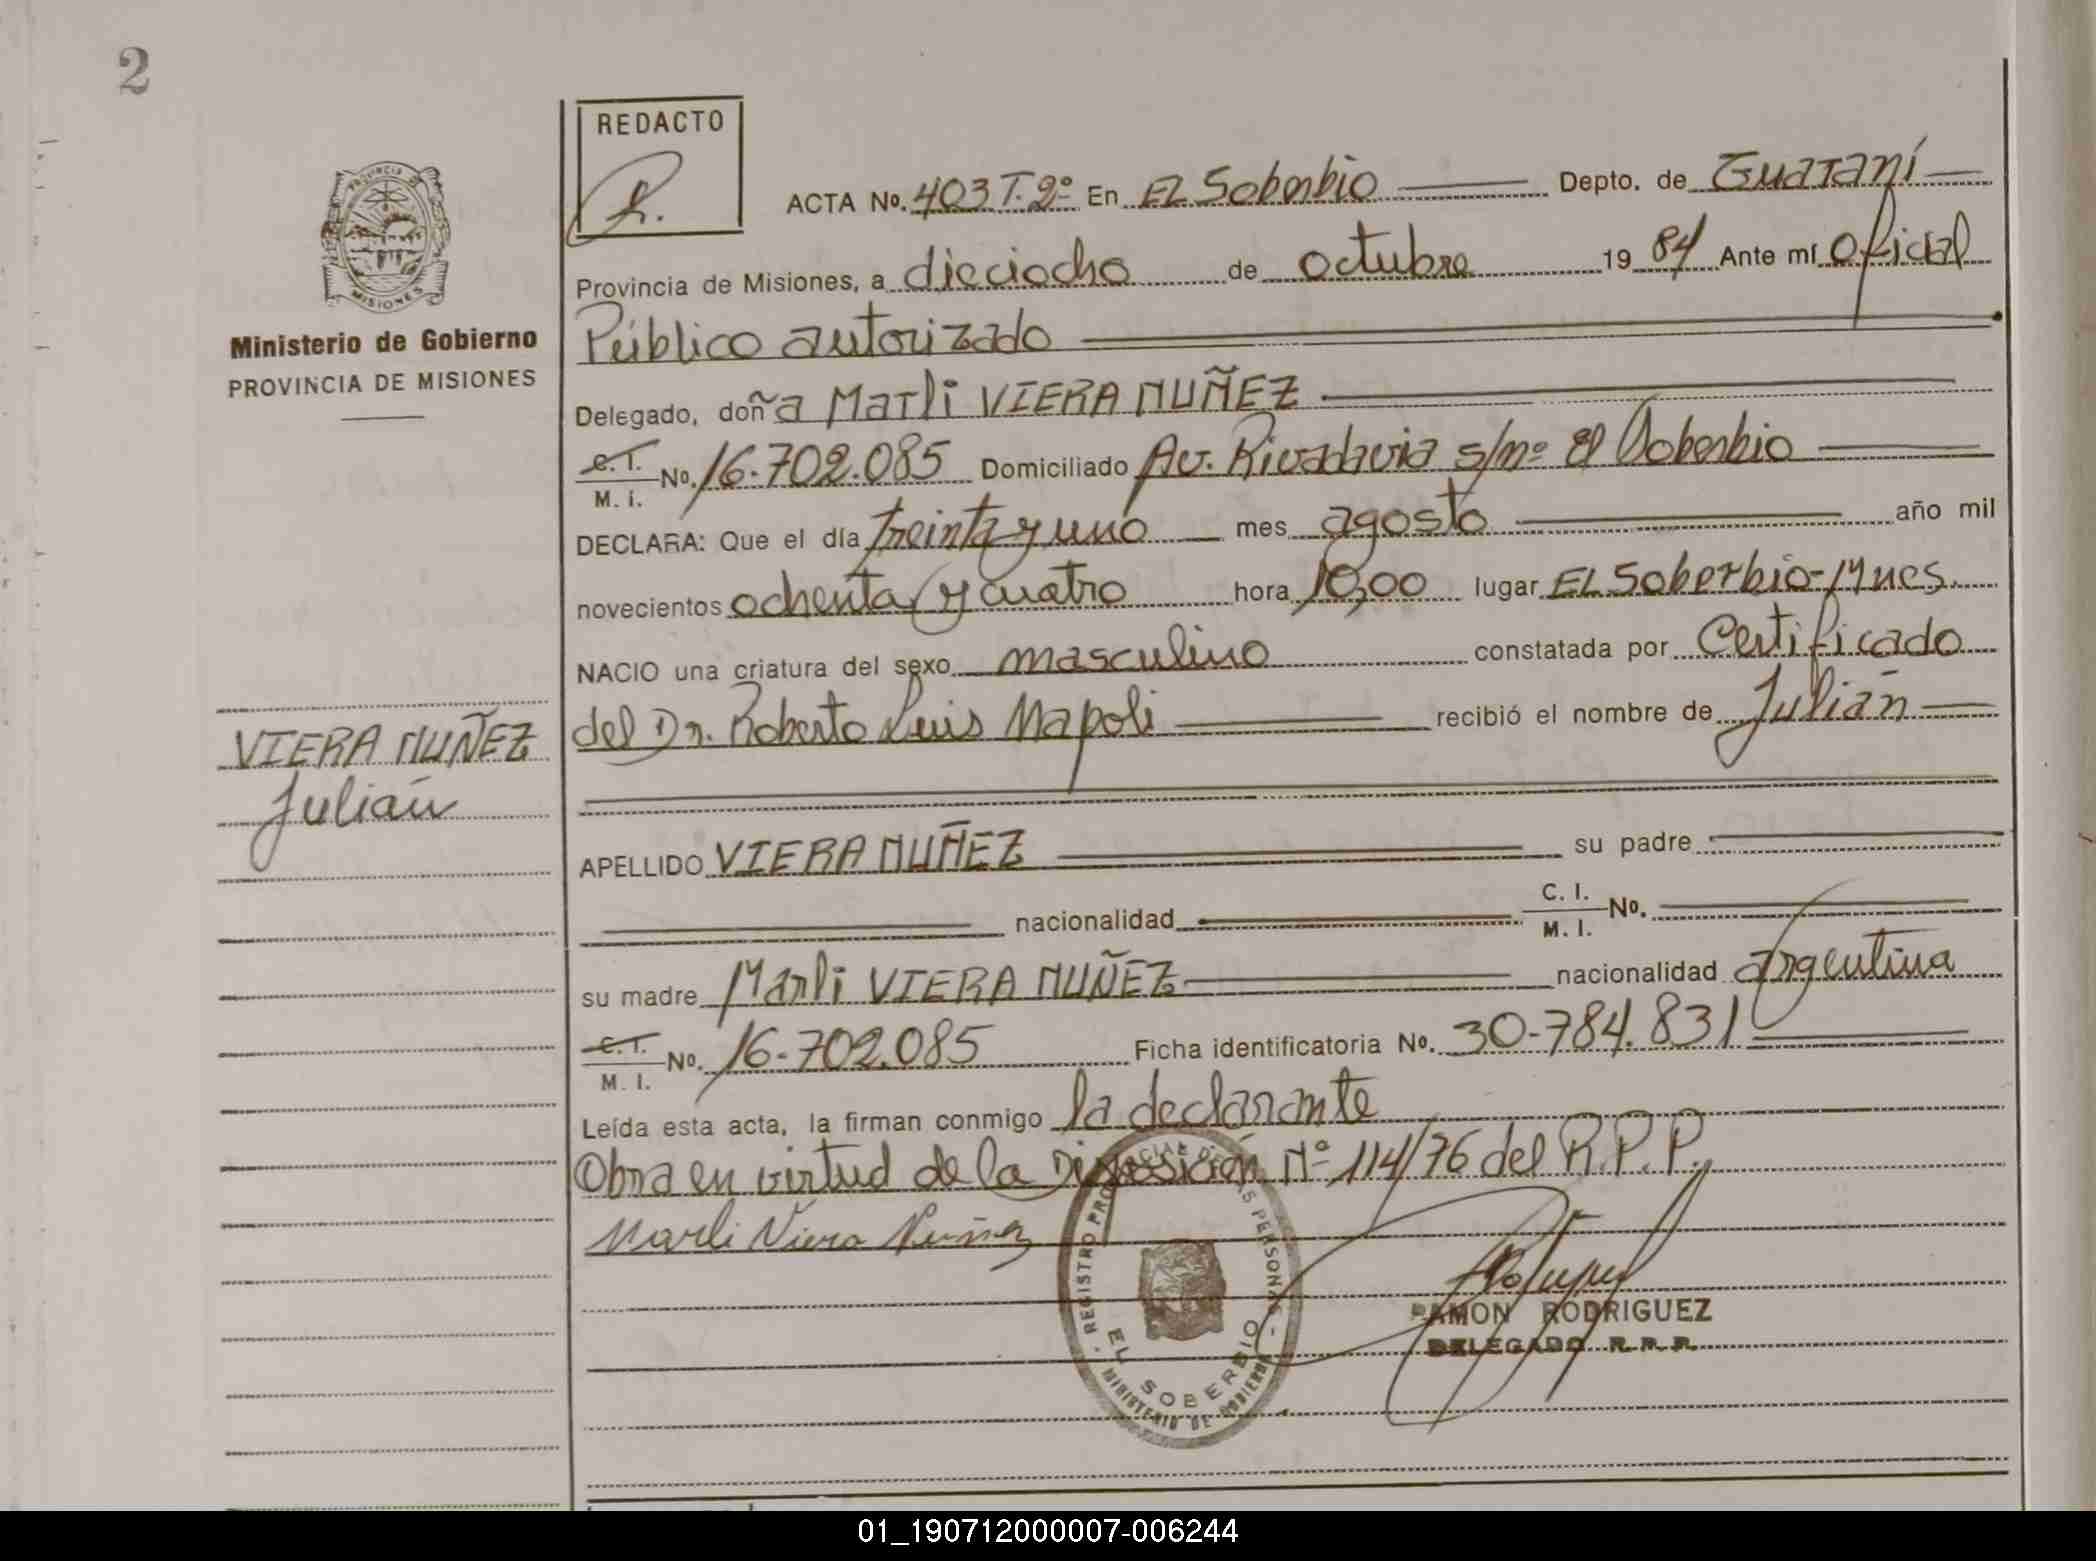 2
REDACTO
PROVINCIA DE
MISIONES
Ministerio de Gobierno
PROVINCIA DE MISIONES
ACTA Nº. 403 T. 2º En EL Soberbio Depto. de Guaraní
Provincia de Misiones, a dieciocho de octubre 19 84 Ante mí Oficial
Público autorizado
Delegado, doña Marli VIERA NUÑEZ
C. I.
M. I. Nº. 16.702.085 Domiciliado Av. Rivadavia s/nº El Soberbio
DECLARA: Que el día treinta y uno mes agosto año mil
novecientos ochenta y cuatro hora 10,00 lugar EL Soberbio-Mnes.
NACIO una criatura del sexo masculino constatada por Certificado
del Dr. Roberto Luis Napoli recibió el nombre de Julián
VIERA NUÑEZ
Julián
APELLIDO VIERA NUÑEZ su padre
nacionalidad C. I.
M. I. Nº.
su madre Marli VIERA NUÑEZ nacionalidad argentina
C. I.
M. I. Nº. 16.702.085 Ficha identificatoria Nº. 30.784.831
Leída esta acta, la firman conmigo la declarante
Obra en virtud de la Disposición Nº 114/76 del R.P.P.
Marli Viera Nuñez
REGISTRO PROVINCIAL DE LAS PERSONAS
EL SOBERBIO
MINISTERIO DE GOBIERNO
RAMON RODRIGUEZ
DELEGADO R.P.P.
01_190712000007-006244